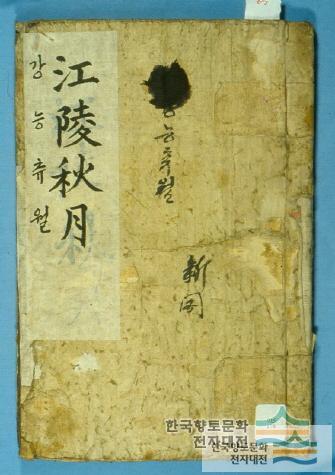 江陵秋月
강능츄월
능추월
新聞
한국향토문화
전자대전
한국향토문화
전자대전